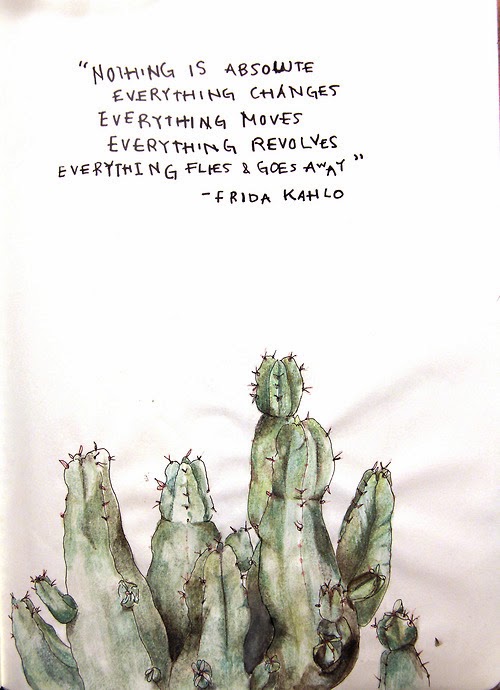 "NOTHING IS ABSOLUTE
EVERYTHING CHANGES
EVERYTHING MOVES
EVERYTHING REVOLVES
EVERYTHING FLIES & GOES AWAY"
-FRIDA KAHLO